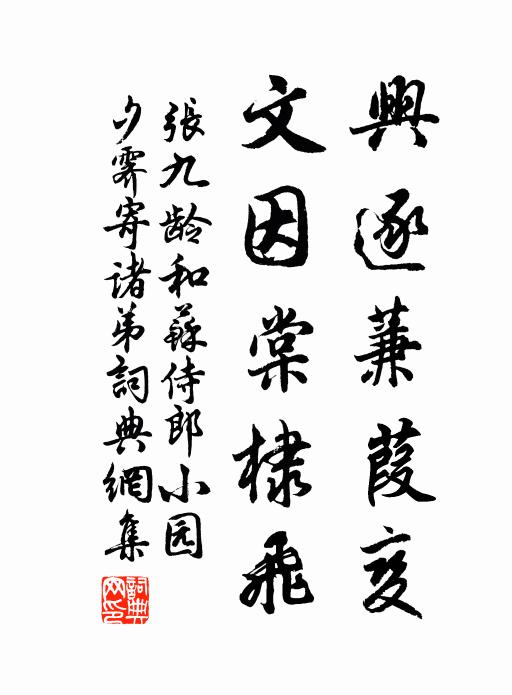 興逐蒹葭变
文因棠棣飛
張九龄和蘇侍郎小园
夕霽寄諸弟詞典網集
詞典网印